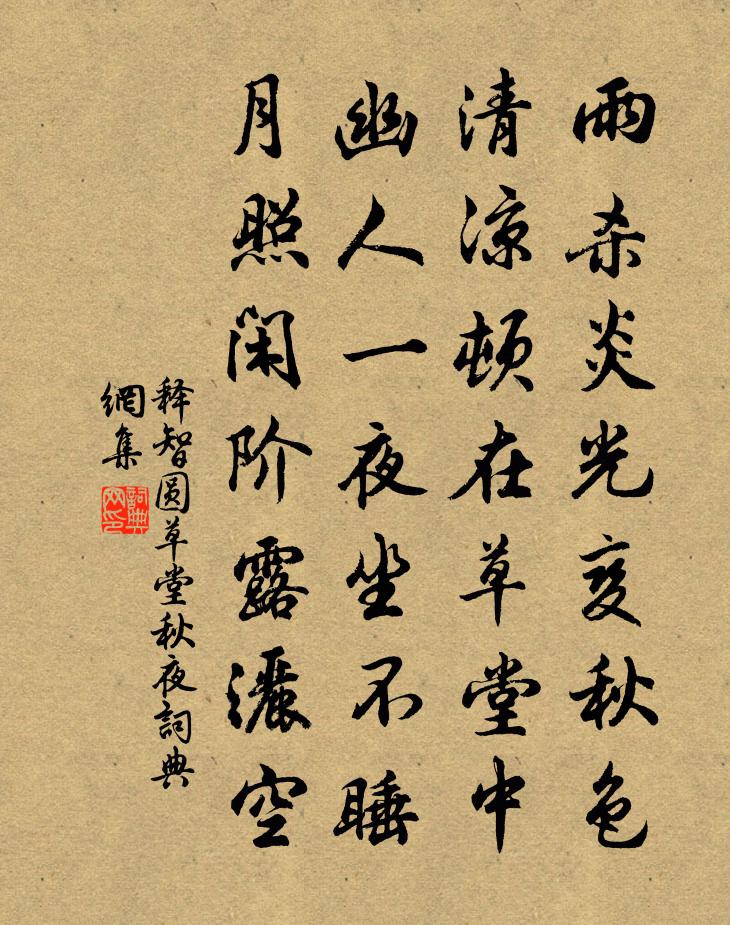 雨杀炎光变秋色
清凉顿在草堂中
幽人一夜坐不睡
月照闲阶露洒空
释智圆草堂秋夜詞典
網集
詞典网印